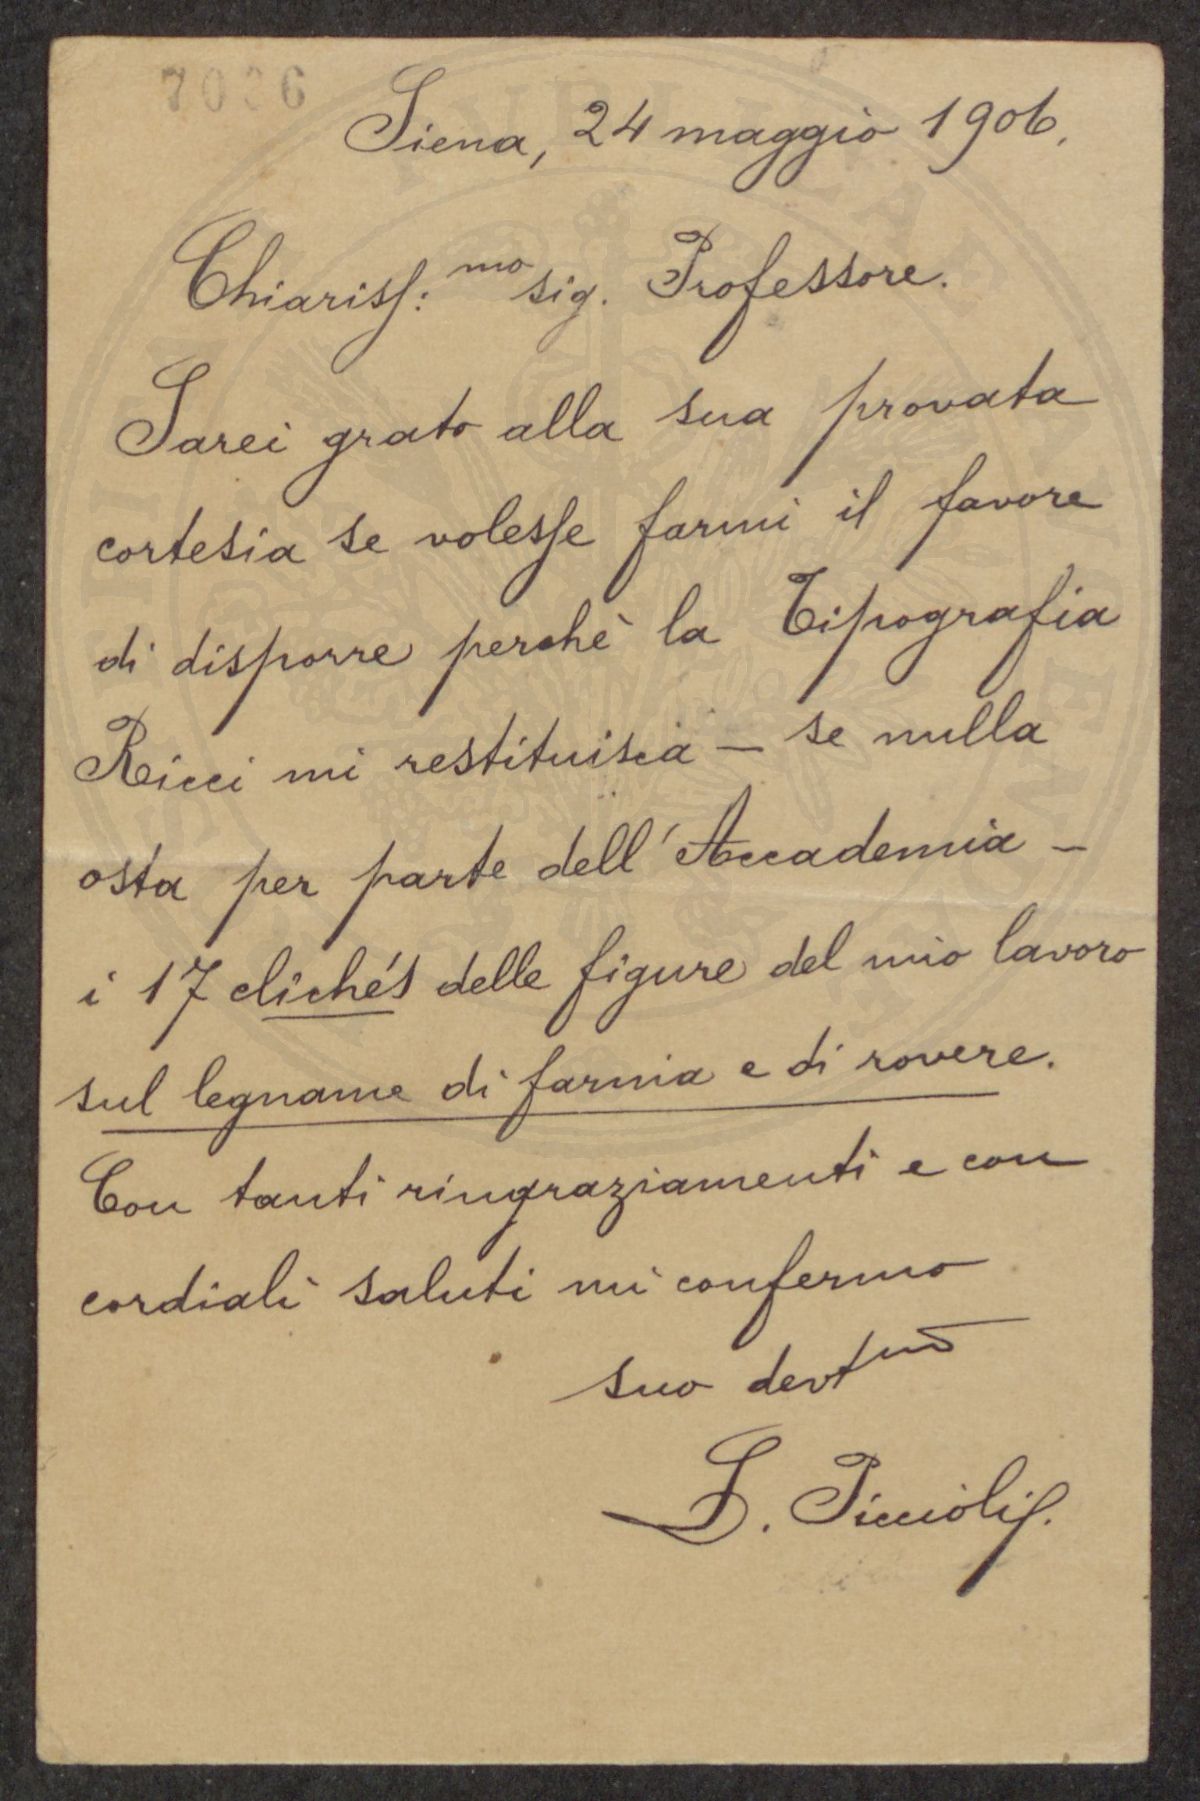 7036
Siena, 24 maggio 1906.
Chiariss:mo sig. Professore.
Sarei grato alla sua provata
cortesia se volesse farmi il favore
di disporre perchè la Tipografia
Ricci mi restituisca — se nulla
osta per parte dell'Accademia —
i 17 clichés delle figure del mio lavoro
sul legname di farnia e di rovere.
Con tanti ringraziamenti e con
cordiali saluti mi confermo
suo devtmo
L. Piccioli.